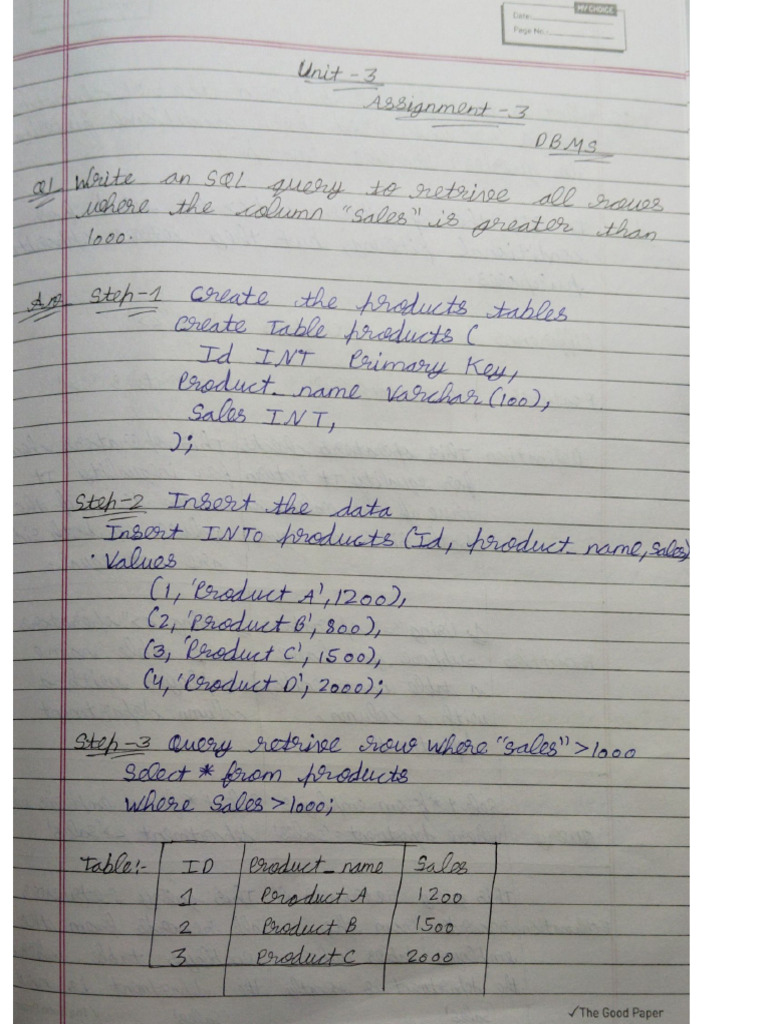 MY CHOICE
Date:
Page No.:
Unit - 3
Assignment - 3
DBMS
Q1 Write an SQL query to retrive all rows
where the column "Sales" is greater than
1000.
Ans Step-1 Create the products tables
Create Table products (
Id INT Primary Key,
Product_name Varchar(100),
Sales INT,
);
Step-2 Insert the data
Insert INTO products (Id, product_name, sales)
Values
(1, 'Product A', 1200),
(2, 'Product B', 800),
(3, 'Product C', 1500),
(4, 'Product D', 2000);
Step-3 Query retrive row where "sales" > 1000
Select * from products
Where Sales > 1000;
Table:- ID Product_name Sales
1 Product A 1200
2 Product B 1500
3 Product C 2000
✓The Good Paper